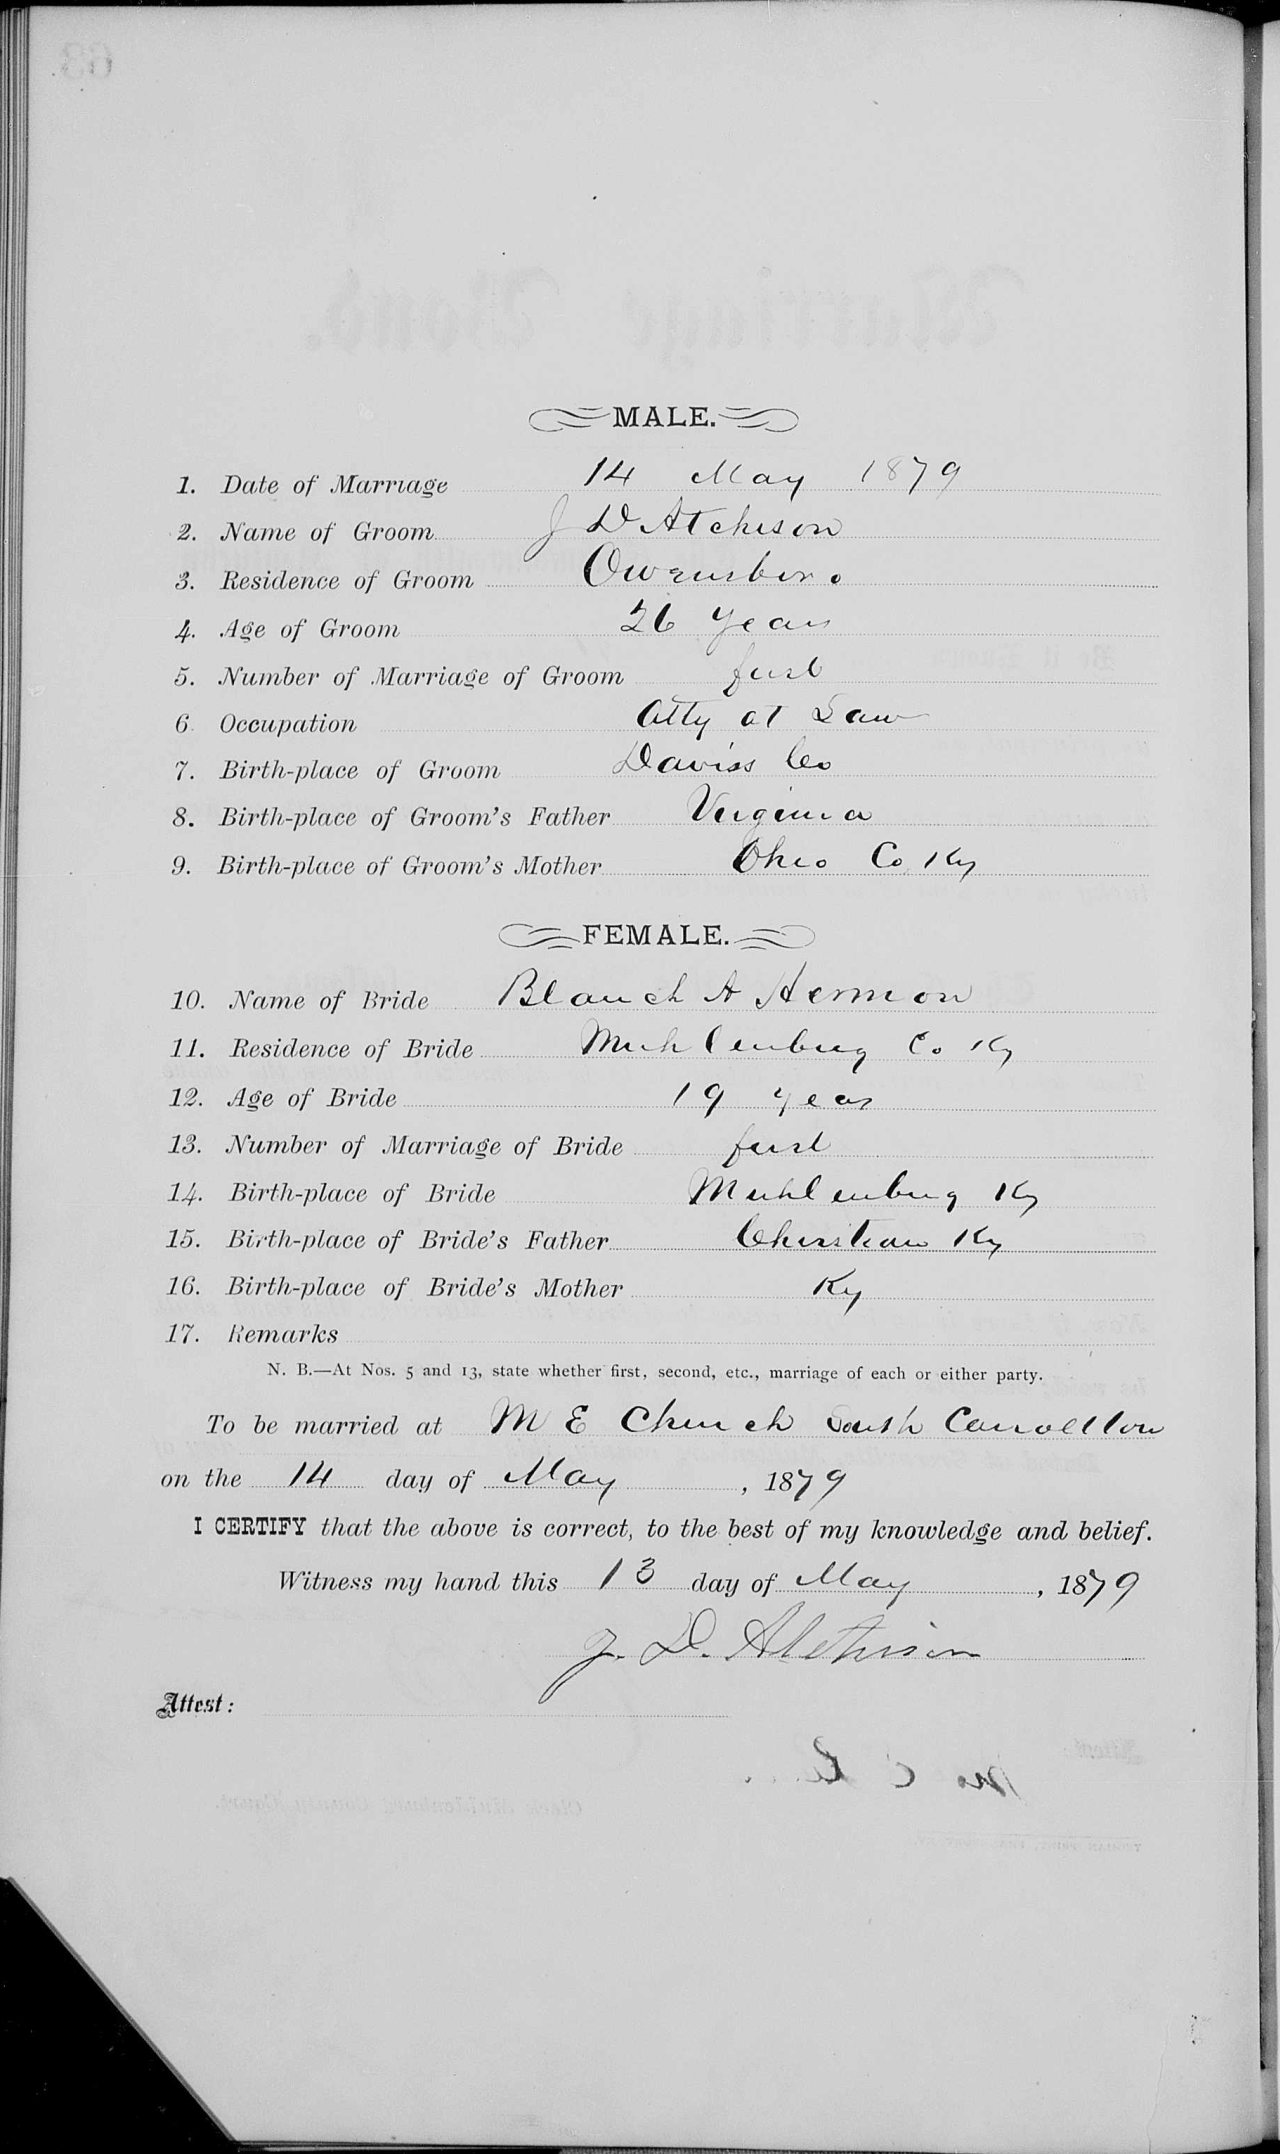 MALE.
1. Date of Marriage 14 May 1879
2. Name of Groom J D Atchison
3. Residence of Groom Owensboro
4. Age of Groom 26 years
5. Number of Marriage of Groom first
6 Occupation Atty at Law
7. Birth-place of Groom Daviss Co
8. Birth-place of Groom's Father Virginia
9. Birth-place of Groom's Mother Ohio Co. Ky
FEMALE.
10. Name of Bride Blanch A Harmon
11. Residence of Bride Muhlenburg Co Ky
12. Age of Bride 19 years
13. Number of Marriage of Bride first
14. Birth-place of Bride Muhlenburg Ky
15. Birth-place of Bride's Father Christian Ky
16. Birth-place of Bride's Mother Ky
17. Remarks
N. B.—At Nos. 5 and 13, state whether first, second, etc., marriage of each or either party.
To be married at M E Church South Carrollton
on the 14 day of May, 1879
I CERTIFY that the above is correct, to the best of my knowledge and belief.
Witness my hand this 13 day of May, 1879
J. D. Atchison
Attest: